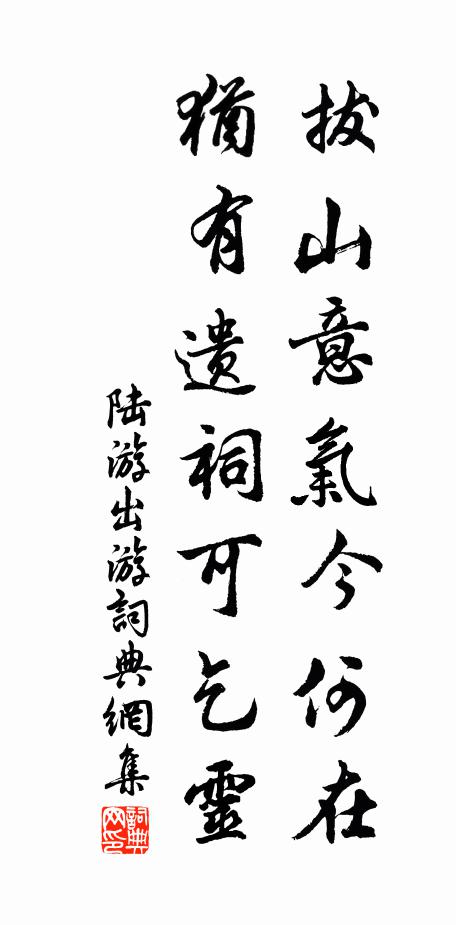 拔山意氣今何在
猶有遺祠可乞靈
陆游出游詞典網集
詞典網印